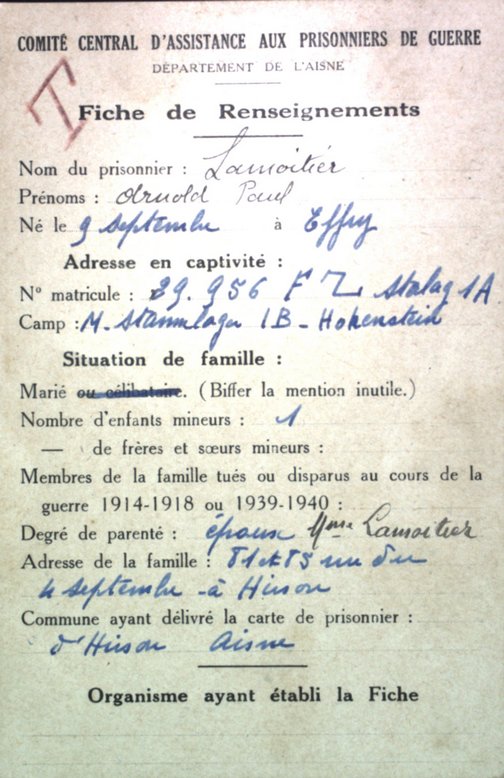 COMITÉ CENTRAL D'ASSISTANCE AUX PRISONNIERS DE GUERRE
DÉPARTEMENT DE L'AISNE
T
Fiche de Renseignements
Nom du prisonnier : Lamoitier
Prénoms : Arnold Paul
Né le 9 septembre à Effry
Adresse en captivité :
N° matricule : 29.956 Stalag 1A
Camp : M. Stammlager 1B - Hohenstein
Situation de famille :
Marié ou célibataire. (Biffer la mention inutile.)
Nombre d'enfants mineurs : 1
— de frères et sœurs mineurs :
Membres de la famille tués ou disparus au cours de la
guerre 1914-1918 ou 1939-1940 :
Degré de parenté : époux Mme Lamoitier
Adresse de la famille : rue du
4 septembre - à Hirson
Commune ayant délivré la carte de prisonnier :
d'Hirson Aisne
Organisme ayant établi la Fiche